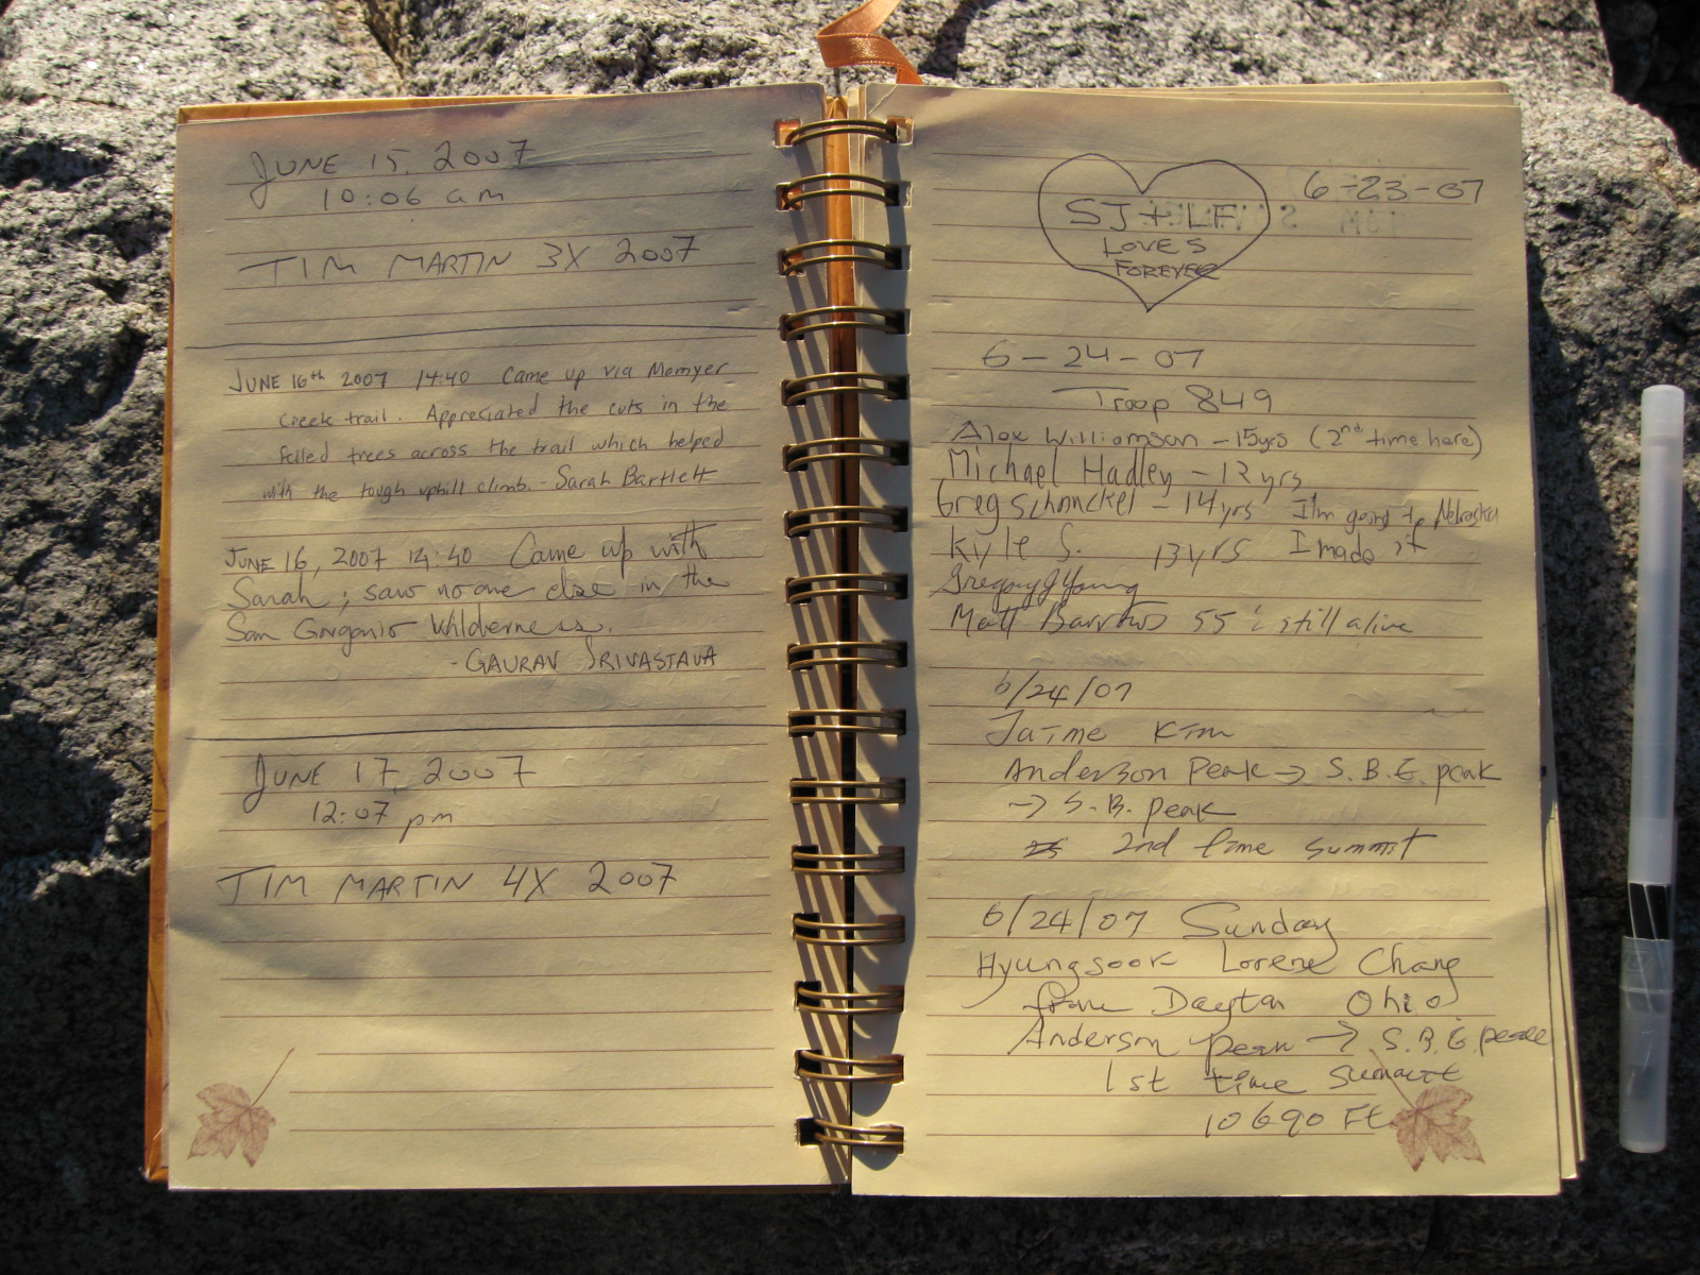 JUNE 15, 2007
10:06 am
TIM MARTIN 3X 2007
JUNE 16th 2007 14:40 Came up via Momyer
Creek trail. Appreciated the cuts in the
felled trees across the trail which helped
with the tough uphill climb. - Sarah Bartlett
JUNE 16, 2007 14:40 Came up with
Sarah; saw no one else in the
San Gorgonio Wilderness.
- GAURAV SRIVASTAVA
JUNE 17, 2007
12:07 pm
TIM MARTIN 4X 2007
6-23-07
SJ + LF
LOVES
FOREVER
6-24-07
Troop 849
Alex Williamson - 15yrs (2nd time here)
Michael Hadley - 12 yrs
Greg Schonckel - 14yrs I'm going to Nebraska
Kyle S. 13yrs I made it
Gregory J Young
Matt 55 i still alive
6/24/07
Jaime Kim
Anderson Peak → S.B.E. peak
→ S.B. peak
2nd time summit
6/24/07 Sunday
Hyungsook Lorene Chang
from Dayton Ohio
Anderson peak → S.B.E. peak
1st time summit
10690 Ft